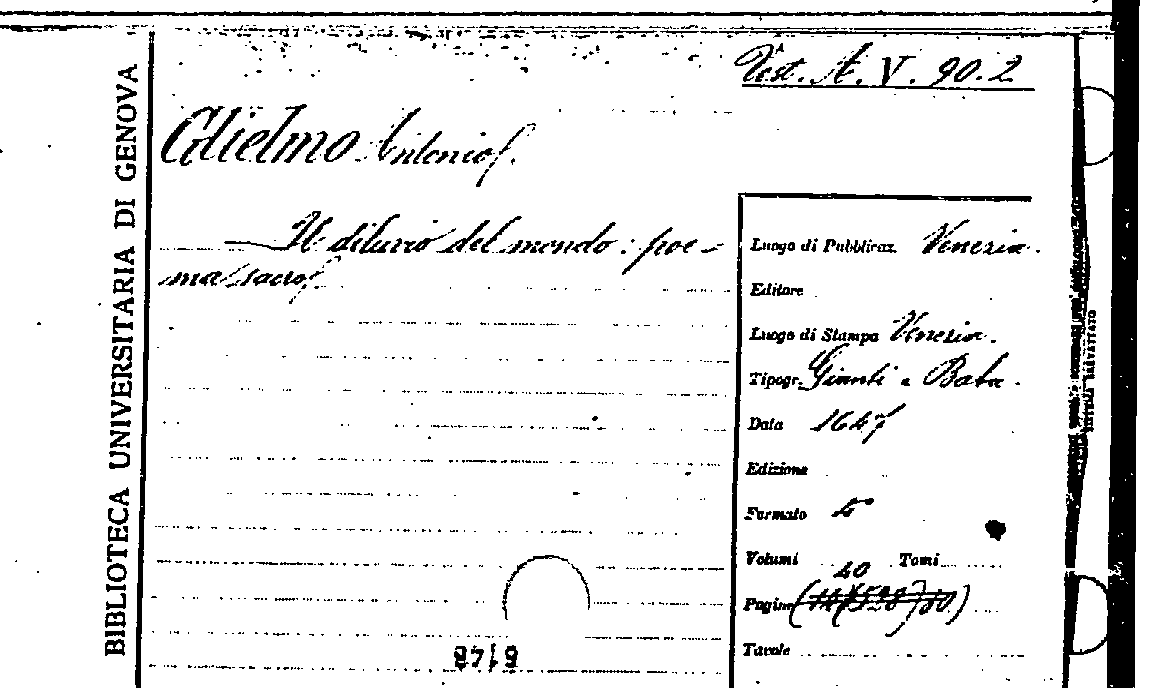 BIBLIOTECA UNIVERSITARIA DI GENOVA
Vest. A. V. 90.2
Glielmo Antonio.
Il diluvio del mondo: poe-
ma sacro.
Luogo di Pubblicaz. Venezia.
Editore
Luogo di Stampa Venezia.
Tipogr. Giunti e Baba.
Data 1647
Edizione
Formato 4°
Volumi Tomi
Pagine
Tavole